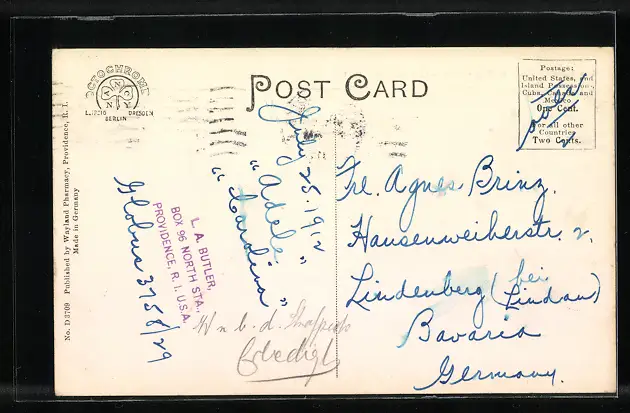 OCTOCHROME
ANC
NY
LEIPZIG DRESDEN
BERLIN
POST CARD
Postage:
United States, and
Island Possessions,
Cuba, Canada and
Mexico
One Cent.
For all other
Countries
Two Cents.
No. D 3709 Published by Wayland Pharmacy, Providence, R. I.
Made in Germany
July 25. 1912
"Adele"
"Carolina"
L. A. BUTLER,
BOX 96 NORTH STA.,
PROVIDENCE, R. I. U.S.A.
Globus 3758/29
Erledigt
Frl. Agnes Brinz.
Hausenweiherstr. 2.
Lindenberg (bei Lindau)
Bavaria
Germany.